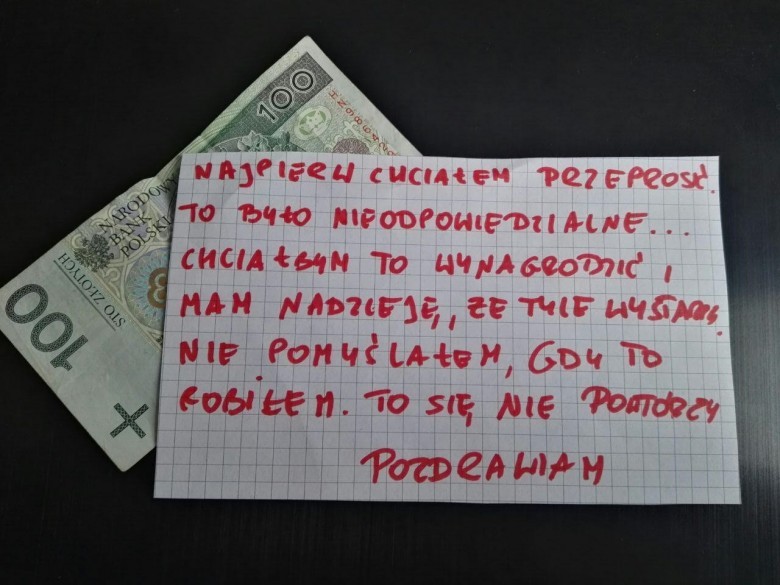 100
NARODOWY
BANK
POLSKI
STO ZŁOTYCH
100
NAJPIERW CHCIAŁEM PRZEPROSĆ.
TO BYŁO NIEODPOWIEDZIALNE...
CHCIAŁBYM TO WYNAGRODZIĆ I
MAM NADZIEJĘ, ŻE TYLE
NIE POMYŚLAŁEM, GDY TO
ROBIŁEM. TO SIĘ NIE POWTORZY
POZDRAWIAM